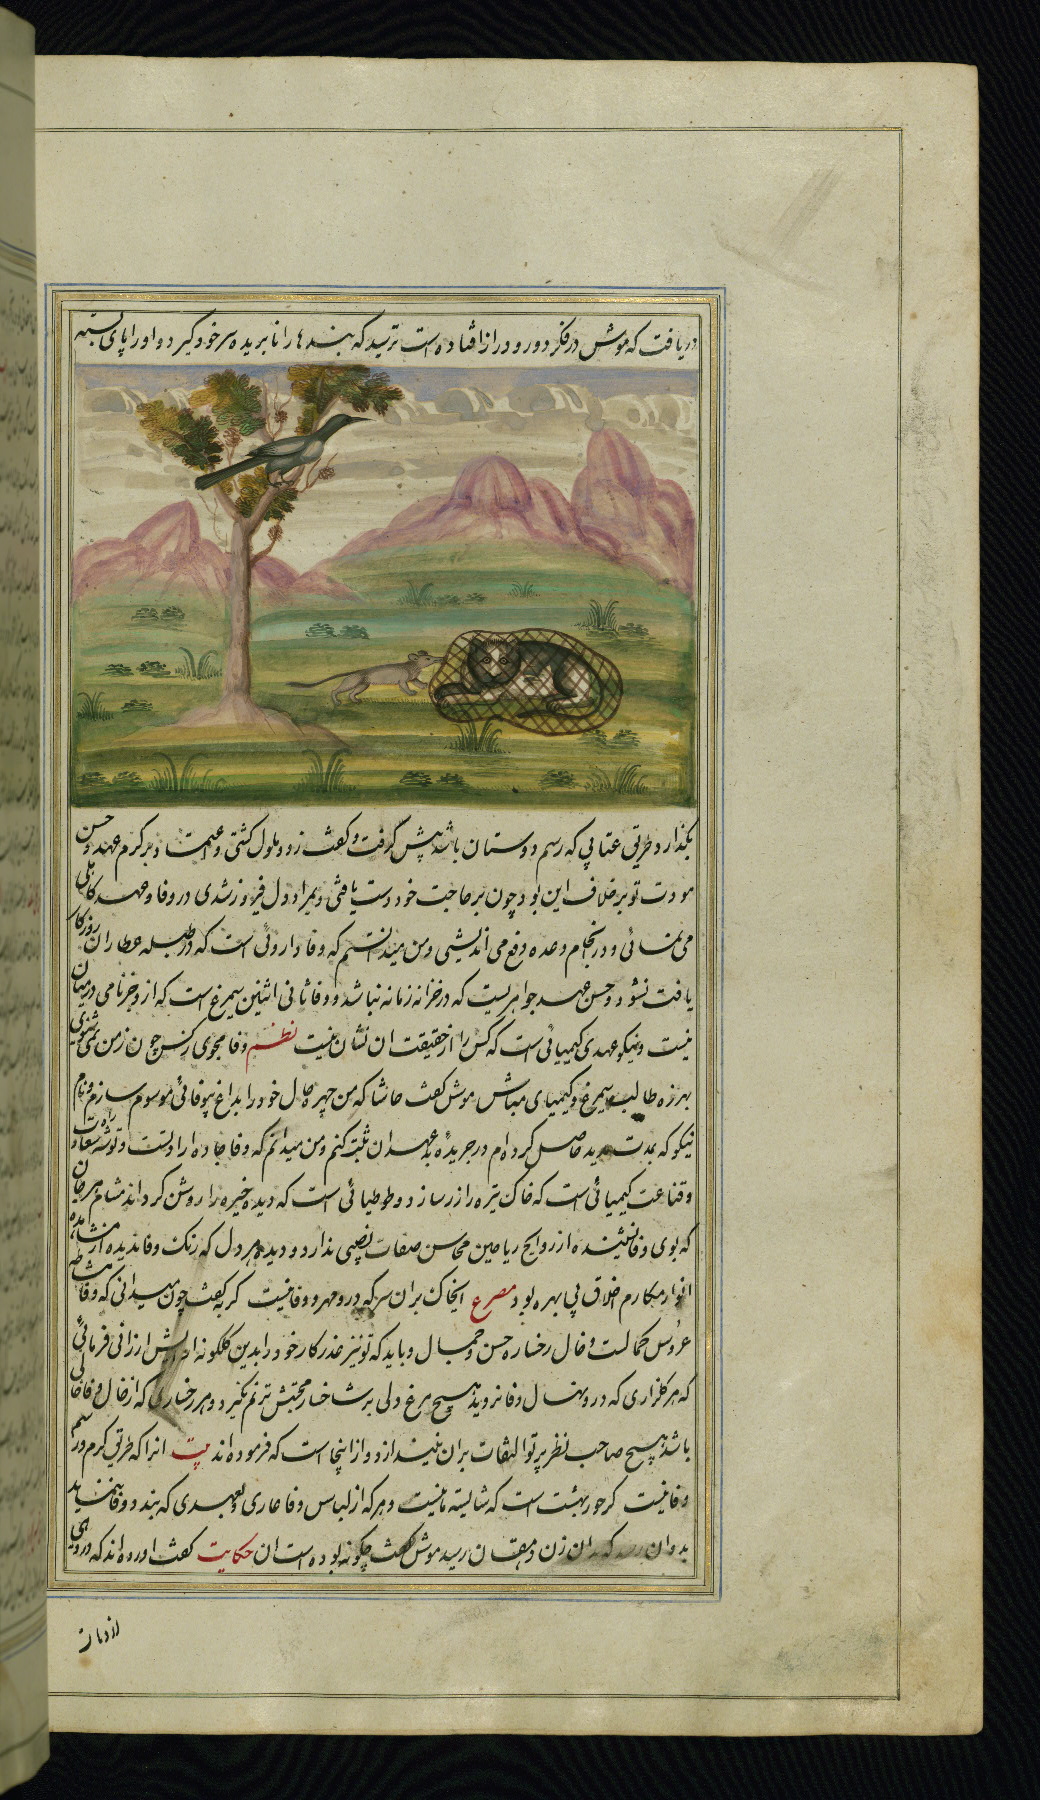 دریافت که موش در فکر دور و دراز افتاده است ترسید که بندها را نابریده سر خود گیرد و او را پای بسته
بگذارد طریق عتابی که رسم دوستان باشد پیش گرفت و گفت زود ملول گشتی و اعتماد بر کرم عهد و حسن
مودت تو بر خلاف این بود چون بر حاجت خود دست یافتی و بمراد دل فیروز شدی در وفا و عهد کاهلی
می نمائی و در انجام وعده دفع می اندیشی و من میدانستم که وفا داروئی است که در طبله عطاران روزکار
یافت نشود و حسن عهد جواهریست که در خزانه زمانه نباشد و وفا ثانی اثنین سیمرغ است که ازو جز نامی درمیان
نیست و نیکو عهدی کیمیائی است که کس را از حقیقت ان نشان نیست نظم وفا مجوی ز کس چون ز من نمی شنوی
بهرزه طالب سیمرغ و کیمیای مباش موش گفت حاشا که من چهره حال خود را بداغ بیوفائی موسوم سازم و نام
نیکو که بمدت مدید حاصل کرده ام در جریده بد عهدان ثبت کنم و من میدانم که وفا جاده ارادتست و توشه راه سعادت
و قناعت کیمیائی است که خاک تیره را زر سازد و طوطیائی است که دیده خیره را روشن کرداند مشام هر جان
که بوی وفا نشنیده از روایح ریاحین محاسن صفات نصیبی ندارد و دیده هر دل که رنک وفا ندیده از مشاهده
انوار مکارم اخلاق بی بهره بود مصرع ایخاک بران سر که درو مهر و وفا نیست گربه گفت چون میدانی که وفا مشاطه
عروس کمالست و خال رخساره حسن و جمال و باید که تو نیز عذر کار خود را بدین گلگونه ارایش ارزانی فرمائی
که هر گلزاری که درو نهال وفا نروید هیچ مرغ دلی بر شاخسار محبتش ترنم نگیرد و هر رخساری که از خال وفا خالی
باشد هیچ صاحب نظر پرتو التفات بران نیندازد و از اینجا است که فرموده اند بیت انرا که طریق کرم و رسم
وفا نیست گر حور بهشت است که شایسته ما نیست و هر که از لباس وفا عاری و بعهدی که بندد وفا ننماید
بدوان رسد که بدان زن دهقان رسید موش گفت چگونه بوده است ان حکایت گفت اورده اند که در دهی
از دهات